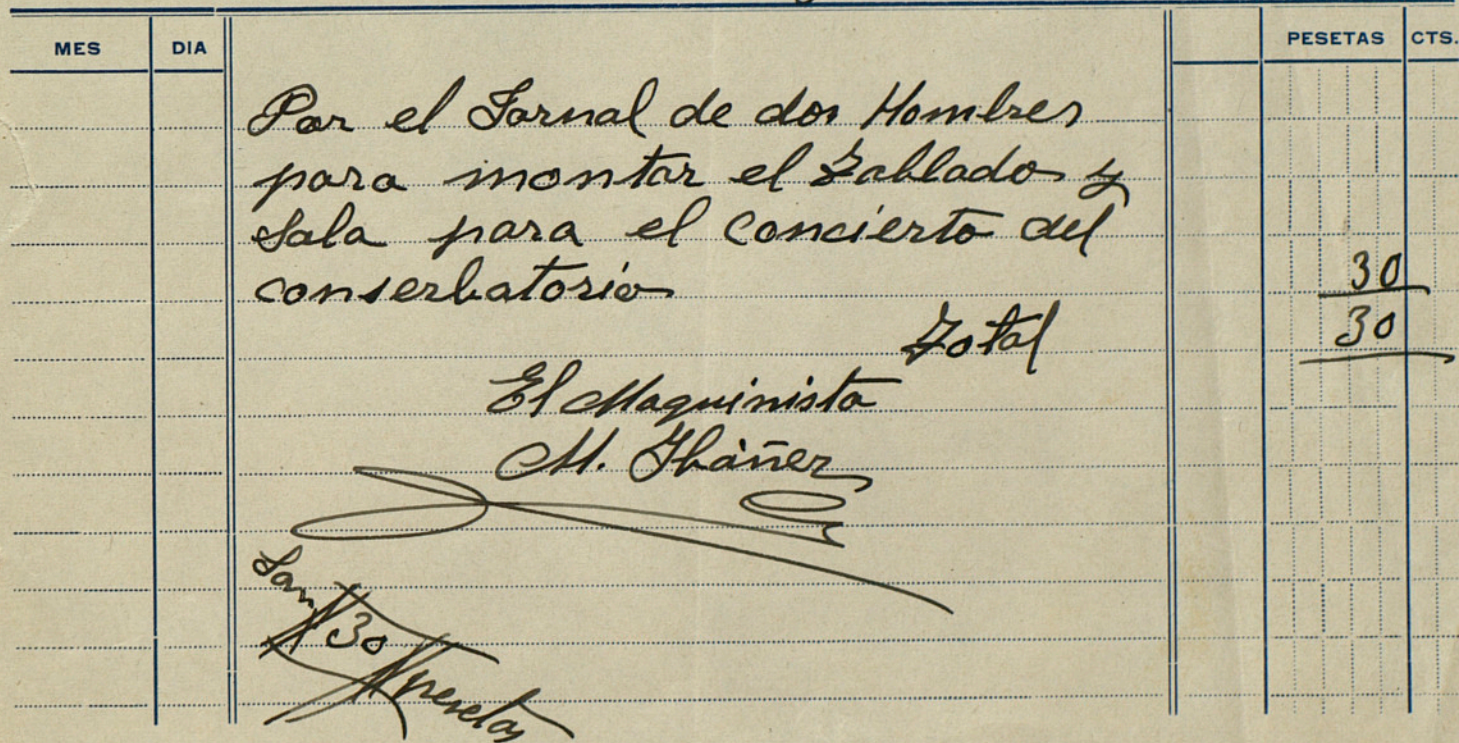 MES DIA PESETAS CTS.
Por el Jornal de dos Hombres
para montar el Tablado y
Sala para el concierto del
conserbatorio 30
Total 30
El Maquinista
M. Ibáñez
Son
#30#
pesetas